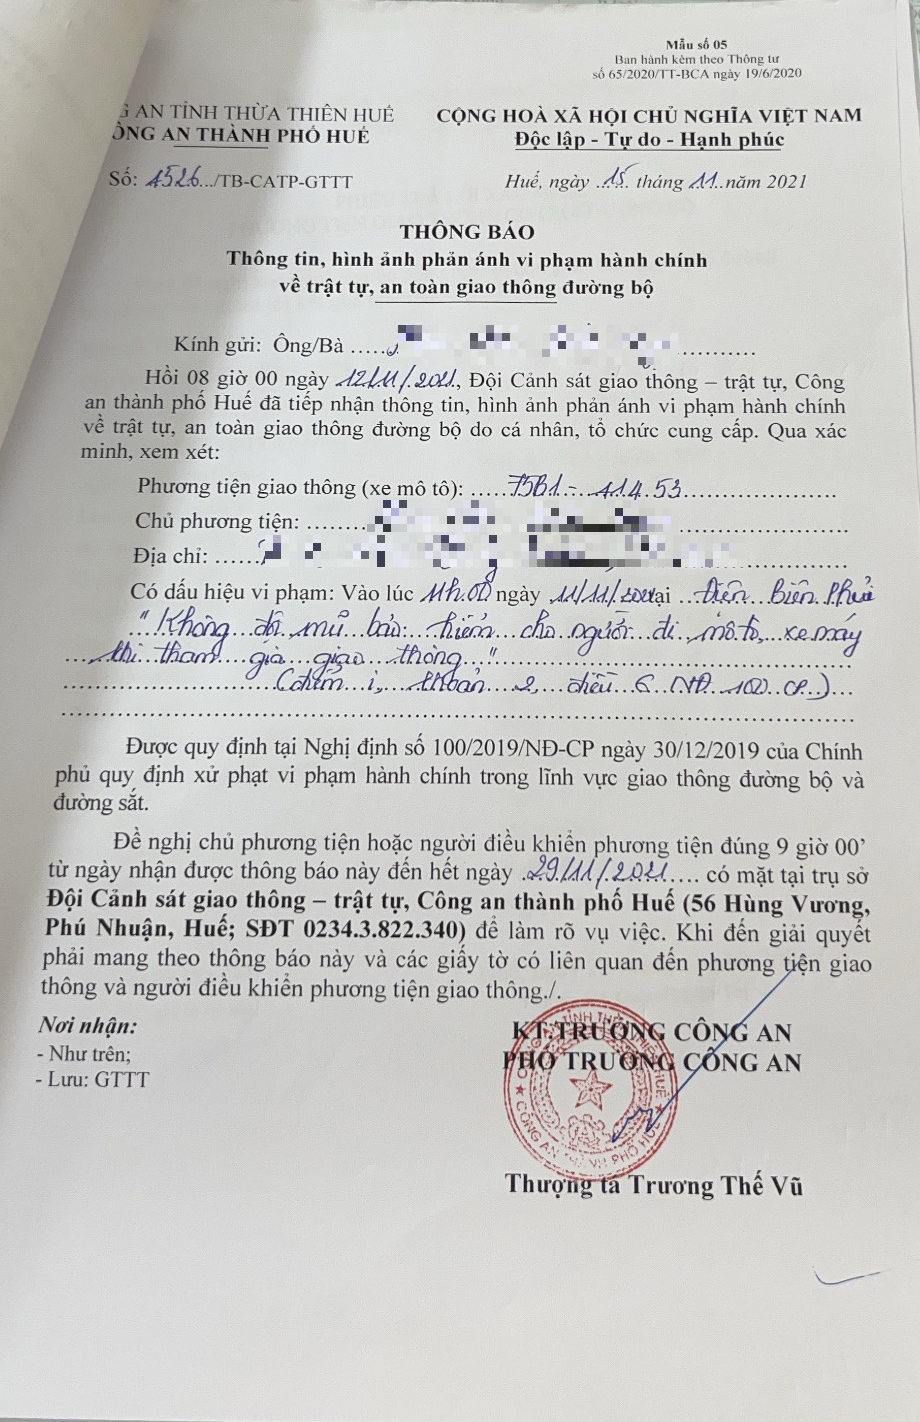 Mẫu số 05
Ban hành kèm theo Thông tư
số 65/2020/TT-BCA ngày 19/6/2020
G AN TỈNH THỪA THIÊN HUẾ
ÔNG AN THÀNH PHỐ HUẾ
CỘNG HOÀ XÃ HỘI CHỦ NGHĨA VIỆT NAM
Độc lập - Tự do - Hạnh phúc
Số: 4526../TB-CATP-GTTT
Huế, ngày ..15. tháng .11..năm 2021
THÔNG BÁO
Thông tin, hình ảnh phản ánh vi phạm hành chính
về trật tự, an toàn giao thông đường bộ
Kính gửi: Ông/Bà
Hồi 08 giờ 00 ngày .12/11/.2021., Đội Cảnh sát giao thông – trật tự, Công
an thành phố Huế đã tiếp nhận thông tin, hình ảnh phản ánh vi phạm hành chính
về trật tự, an toàn giao thông đường bộ do cá nhân, tổ chức cung cấp. Qua xác
minh, xem xét:
Phương tiện giao thông (xe mô tô): .....75B1.-..414.53
Chủ phương tiện:
Địa chỉ:
Có dấu hiệu vi phạm: Vào lúc 11h.00 ngày .11/11/.2021 tại ...Điện Biên Phủ
"Không đội mũ bảo hiểm cho người đi mô tô, xe máy
khi tham gia giao thông"
(điểm i, khoản 2, điều 6 NĐ 100 CP)
Được quy định tại Nghị định số 100/2019/NĐ-CP ngày 30/12/2019 của Chính
phủ quy định xử phạt vi phạm hành chính trong lĩnh vực giao thông đường bộ và
đường sắt.
Đề nghị chủ phương tiện hoặc người điều khiển phương tiện đúng 9 giờ 00'
từ ngày nhận được thông báo này đến hết ngày .29/11/.2021.... có mặt tại trụ sở
Đội Cảnh sát giao thông – trật tự, Công an thành phố Huế (56 Hùng Vương,
Phú Nhuận, Huế; SĐT 0234.3.822.340) để làm rõ vụ việc. Khi đến giải quyết
phải mang theo thông báo này và các giấy tờ có liên quan đến phương tiện giao
thông và người điều khiển phương tiện giao thông./.
Nơi nhận:
- Như trên;
- Lưu: GTTT
KT.TRƯỞNG CÔNG AN
PHÓ TRƯỞNG CÔNG AN
CÔNG AN TỈNH THỪA THIÊN HUẾ
CÔNG AN THÀNH PHỐ HUẾ
Thượng tá Trương Thế Vũ